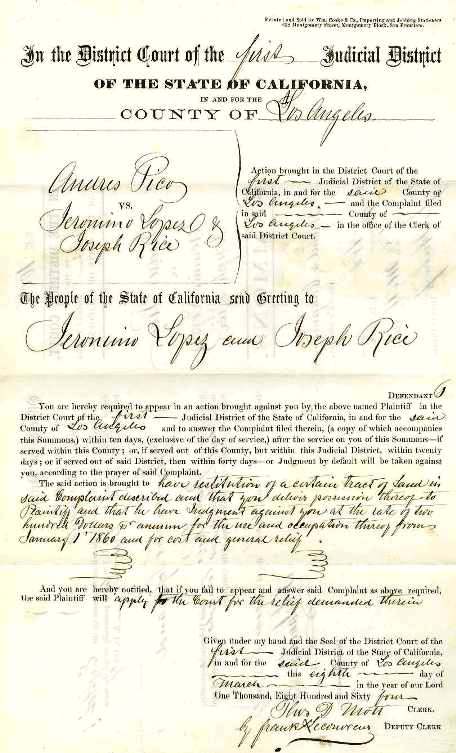 Printed and Sold by Wm. Cooke & Co., Importing and Jobbing Stationers
Montgomery Street, Montgomery Block, San Francisco.
In the District Court of the first Judicial District
OF THE STATE OF CALIFORNIA,
IN AND FOR THE
COUNTY OF Los Angeles
Andres Pico
VS.
Jeronimo Lopez &
Joseph Rice
Action brought in the District Court of the
first — Judicial District of the State of
California, in and for the said County of
Los Angeles. — and the Complaint filed
in said — County of —
Los Angeles — in the office of the Clerk of
said District Court.
The People of the State of California send Greeting to
Jeronimo Lopez and Joseph Rice
DEFENDANT s
You are hereby required to appear in an action brought against you by the above named Plaintiff in the
District Court of the first — Judicial District of the State of California, in and for the said
County of Los Angeles and to answer the Complaint filed therein, (a copy of which accompanies
this Summons,) within ten days, (exclusive of the day of service,) after the service on you of this Summons—if
served within this County; or, if served out of this County, but within this Judicial District, within twenty
days; or if served out of said District, then within forty days—or Judgment by default will be taken against
you, according to the prayer of said Complaint.
The said action is brought to have restitution of a certain tract of Land in
said Complaint described and that you deliver possession thereof to
Plaintiff and that he have Judgment against you at the rate of two
hundred Dollars pr annum for the use and occupation thereof from
January 1st 1860 and for cost and general relief.
And you are hereby notified, that if you fail to appear and answer said Complaint as above required,
the said Plaintiff will apply to the Court for the relief demanded therein
Given under my hand and the Seal of the District Court of the
first — Judicial District of the State of California,
in and for the said County of Los Angeles
— this eighth — day of
March — in the year of our Lord
One Thousand, Eight Hundred and Sixty four —
Thos D Mott CLERK.
by Frank Lecouvreur DEPUTY CLERK